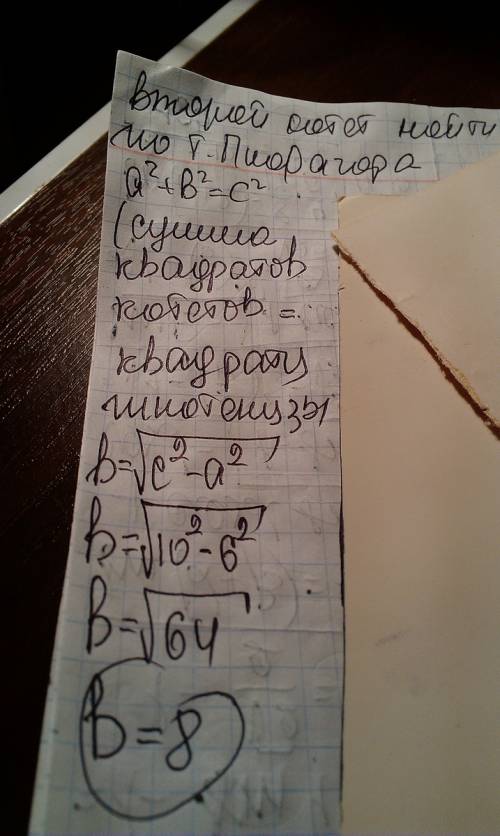 второй катет найти
по т. Пифагора
a²+b²=c²
(сумма
квадратов
катетов =
квадрату
гипотенузы
b=√c²-a²
b=√10²-6²
b=√64
b=8